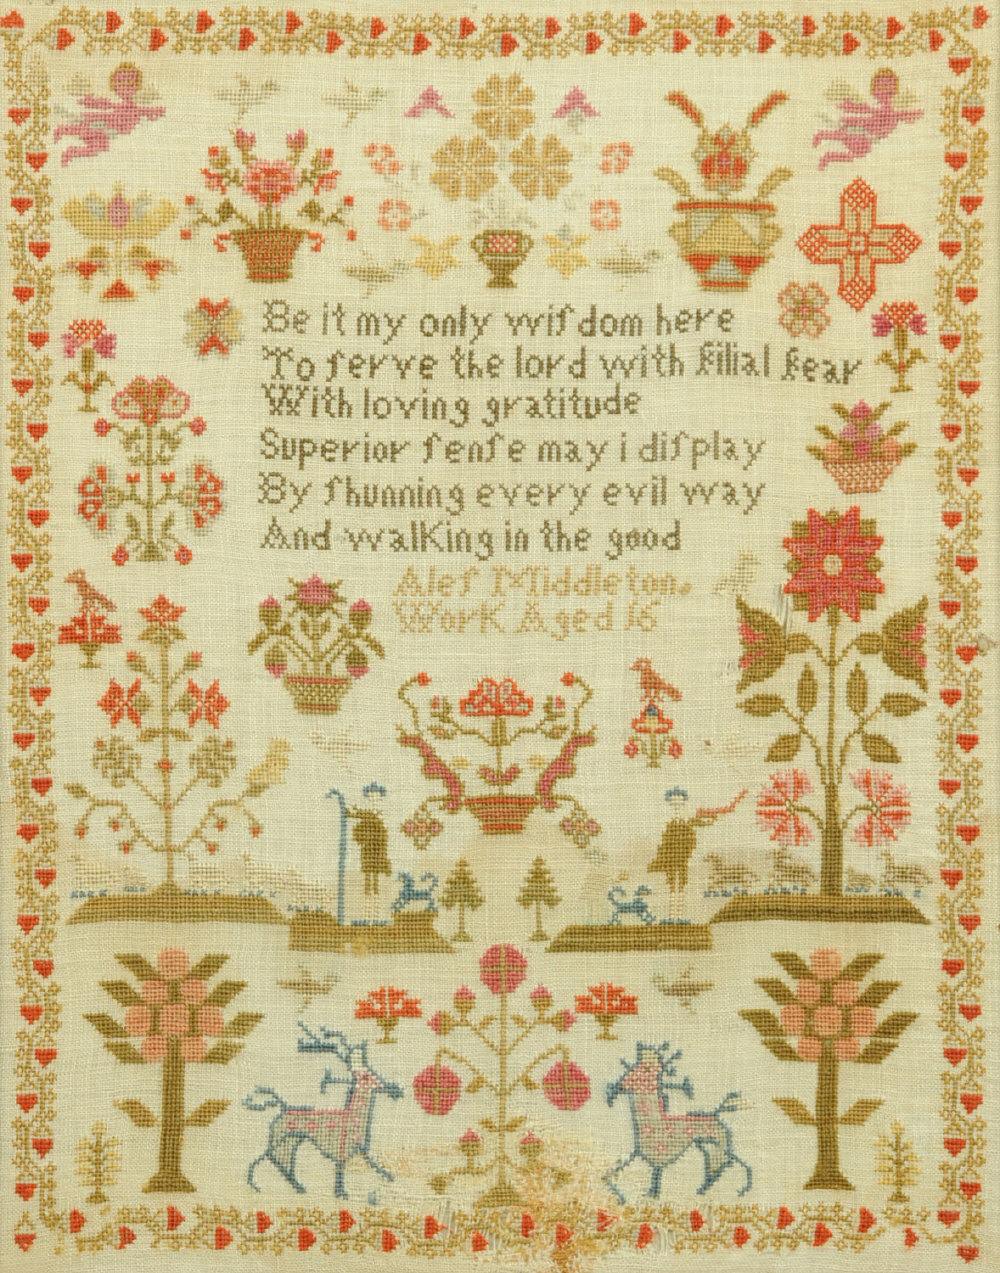 Be it my only wiſdom here
To ſerve the lord with filial fear
With loving gratitude
Superior ſenſe may i diſplay
By ſhunning every evil way
And walking in the good
Aleſ Middleton.
Work Aged 16